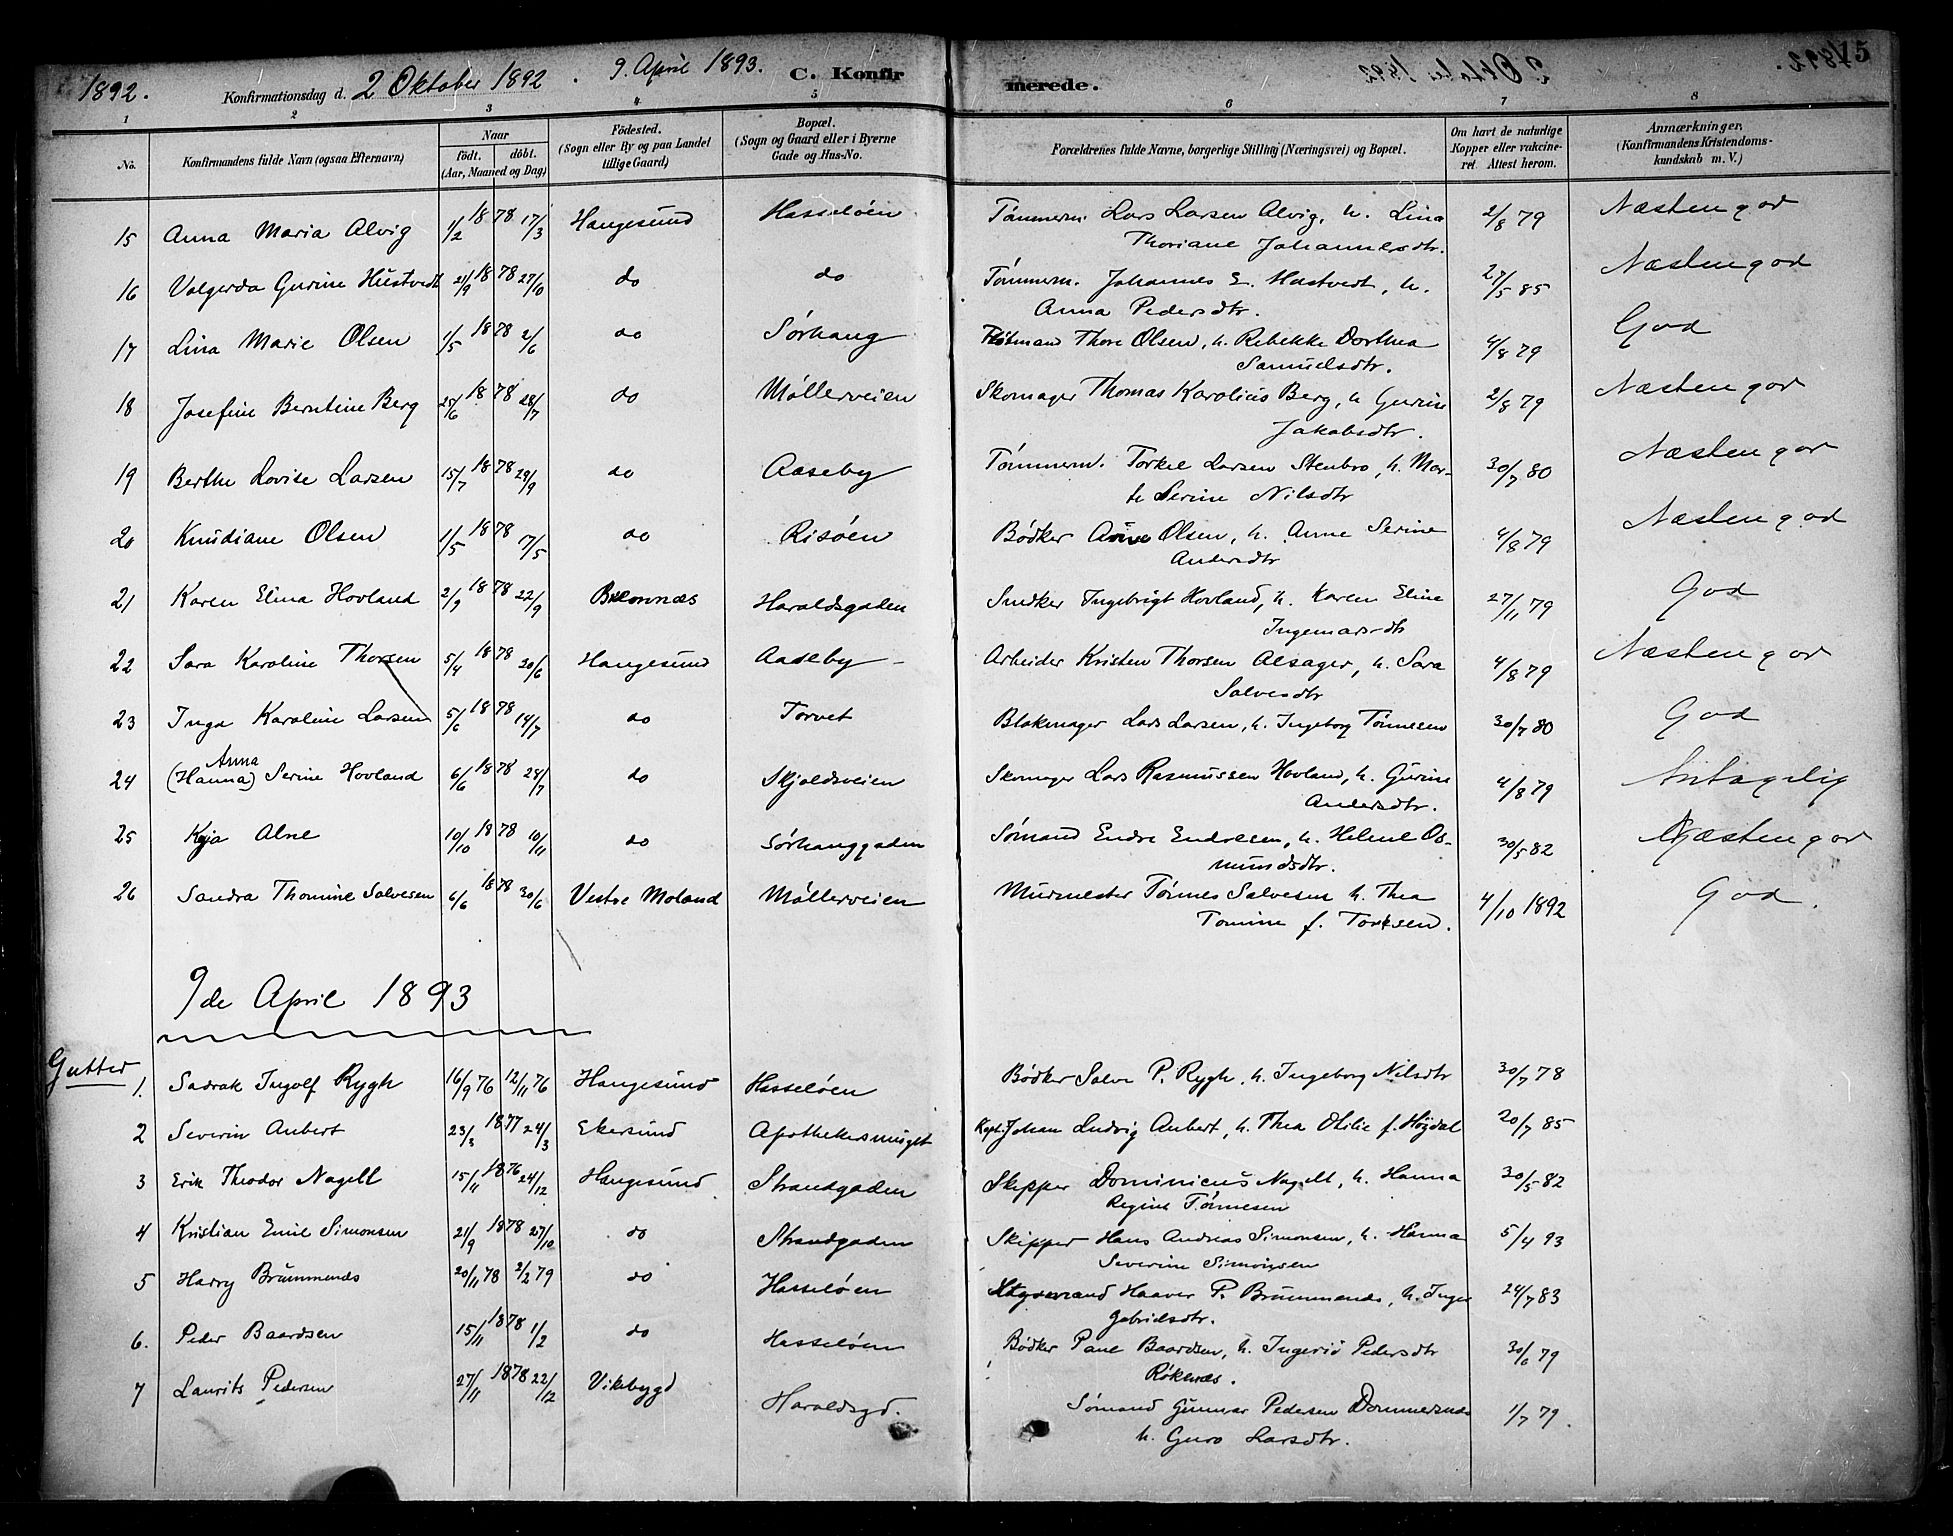 1892. Konfirmationsdag d. 2 Oktober 1892. 9. April 1893. C. Konfirmerede. 15
1 2 3 4 5 6 7 8
No.
Konfirmandens fulde Navn (ogsaa Efternavn)
Naar født. døbt. (Aar, Maaned og Dag)
Fødested. (Sogn eller By og paa Landet tillige Gaard)
Bopæl. (Sogn og Gaard eller i Byerne Gade og Hus-No.
Forældrenes fulde Navne, borgerlige Stilling (Næringsvei) og Bopæl.
Om havt de naturlige Kopper eller vakcineret. Attest herom.
Anmærkninger. (Konfirmandens Kristendomskundskab m. V.)
15 Anna Maria Alvig 1/2 1878 17/3 Haugesund Hasseløen Tømmerm. Lars Larsen Alvig, h. Lina 2/8 79 Næsten god
Thoriane Johannesdtr.
16 Valgerda Gurine Hustvedt 21/9 1878 27/10 do do Tømmerm. Johannes E. Hustvedt, h. 27/5 85 Næsten god
Anna Pedersdtr.
17 Lina Marie Olsen 1/5 1878 2/6 do Sørhaug Thore Olsen, h. Rebekke Dorthea 4/8 79 God
Samuelsdtr.
18 Josefine Berntine Berg 25/6 1878 28/7 do Møllerveien Skomager Thomas Karolius Berg, h Gurine 2/8 79 Næsten god
Jakobsdtr.
19 Berthe Lovise Larsen 15/7 1878 29/9 do Aaseby Tømmerm. Torkel Larsen Stenbro, h. Mar-
30/7 80 Næsten god
te Serine Nilsdtr
20 Knudiane Olsen 1/5 1878 17/5 do Risøen Bødker Arne Olsen, h. Anne Serine 4/8 79 Næsten god
Andersdtr
21 Karen Elina Hovland 2/9 1878 22/9 Bremnæs Haraldsgaden Snedker Ingebrigt Hovland, h. Karen Eline 27/11 79 God
Ingemarsdtr
22 Sara Karoline Thorsen 5/4 1878 20/6 Haugesund Aaseby Arbeider Kristen Thorsen Alsager, h. Sara 4/8 79 Næsten god
Salvesdtr
23 Inga Karoline Larsen 5/6 1878 14/7 do Torvet Blokmager Lars Larsen, h. Ingeborg Tønnesen 30/7 80 God
Anna
24 (Hanna) Serine Hovland 6/6 1878 24/7 do Skjoldsveien Skomager Lars Rasmussen Hovland, h. Gurine 4/8 79 Antagelig
Andersdtr.
25 Kaja Alne 10/10 1878 10/11 do Sørhauggaden Sømand Endre Endresen, h. Helene Os- 30/5 82 Næsten god
mundsdtr.
26 Sandra Thomine Salvesen 6/6 1878 30/6 Vestre Moland Møllerveien Murmester Tønnes Salvesen h. Thea 4/10 1892 God.
Tomine f. Torksen.
9de April 1893
Gutter
1. Sadrak Ingolf Rygh 16/9 76 12/11 76 Haugesund Hasseløen Bødker Salve P. Rygh, h. Ingeborg Nilsdtr 30/7 78
2 Severin Aubert 23/3 1877 24/3 Ekersund Apothekersmuget Kapt. Johan Ludvig Aubert, h. Thea Otilie f. Høydal 20/7 85
3 Erik Theodor Nagell 15/11 1876 24/12 Haugesund Strandgaden Skipper Dominicus Nagell, h. Hanna 30/5 82
Regine Tønnesen
4 Kristian Emil Simonsen 21/9 1878 27/10 do Strandgaden Skipper Hans Andreas Simonsen, h. Hanna 5/4 93
Severine Simonsen
5 Harry Brummenæs 20/11 78 2/2 79 do Hasseløen Haaver P. Brummenæs, h. Inger 24/7 83
Gabrielsdtr.
6. Peder Baardsen 15/11 1878 1/2 do Hasseløen Bødker Paul Baardsen, h. Ingerid Pedersdtr 30/6 79
Røkenæs.
7 Laurits Pedersen 27/11 1878 22/12 Vikebygd Haraldsgd. Sømand Gunnar Pedersen Dommersnæs 1/7 79.
h. Guro Larsdtr.